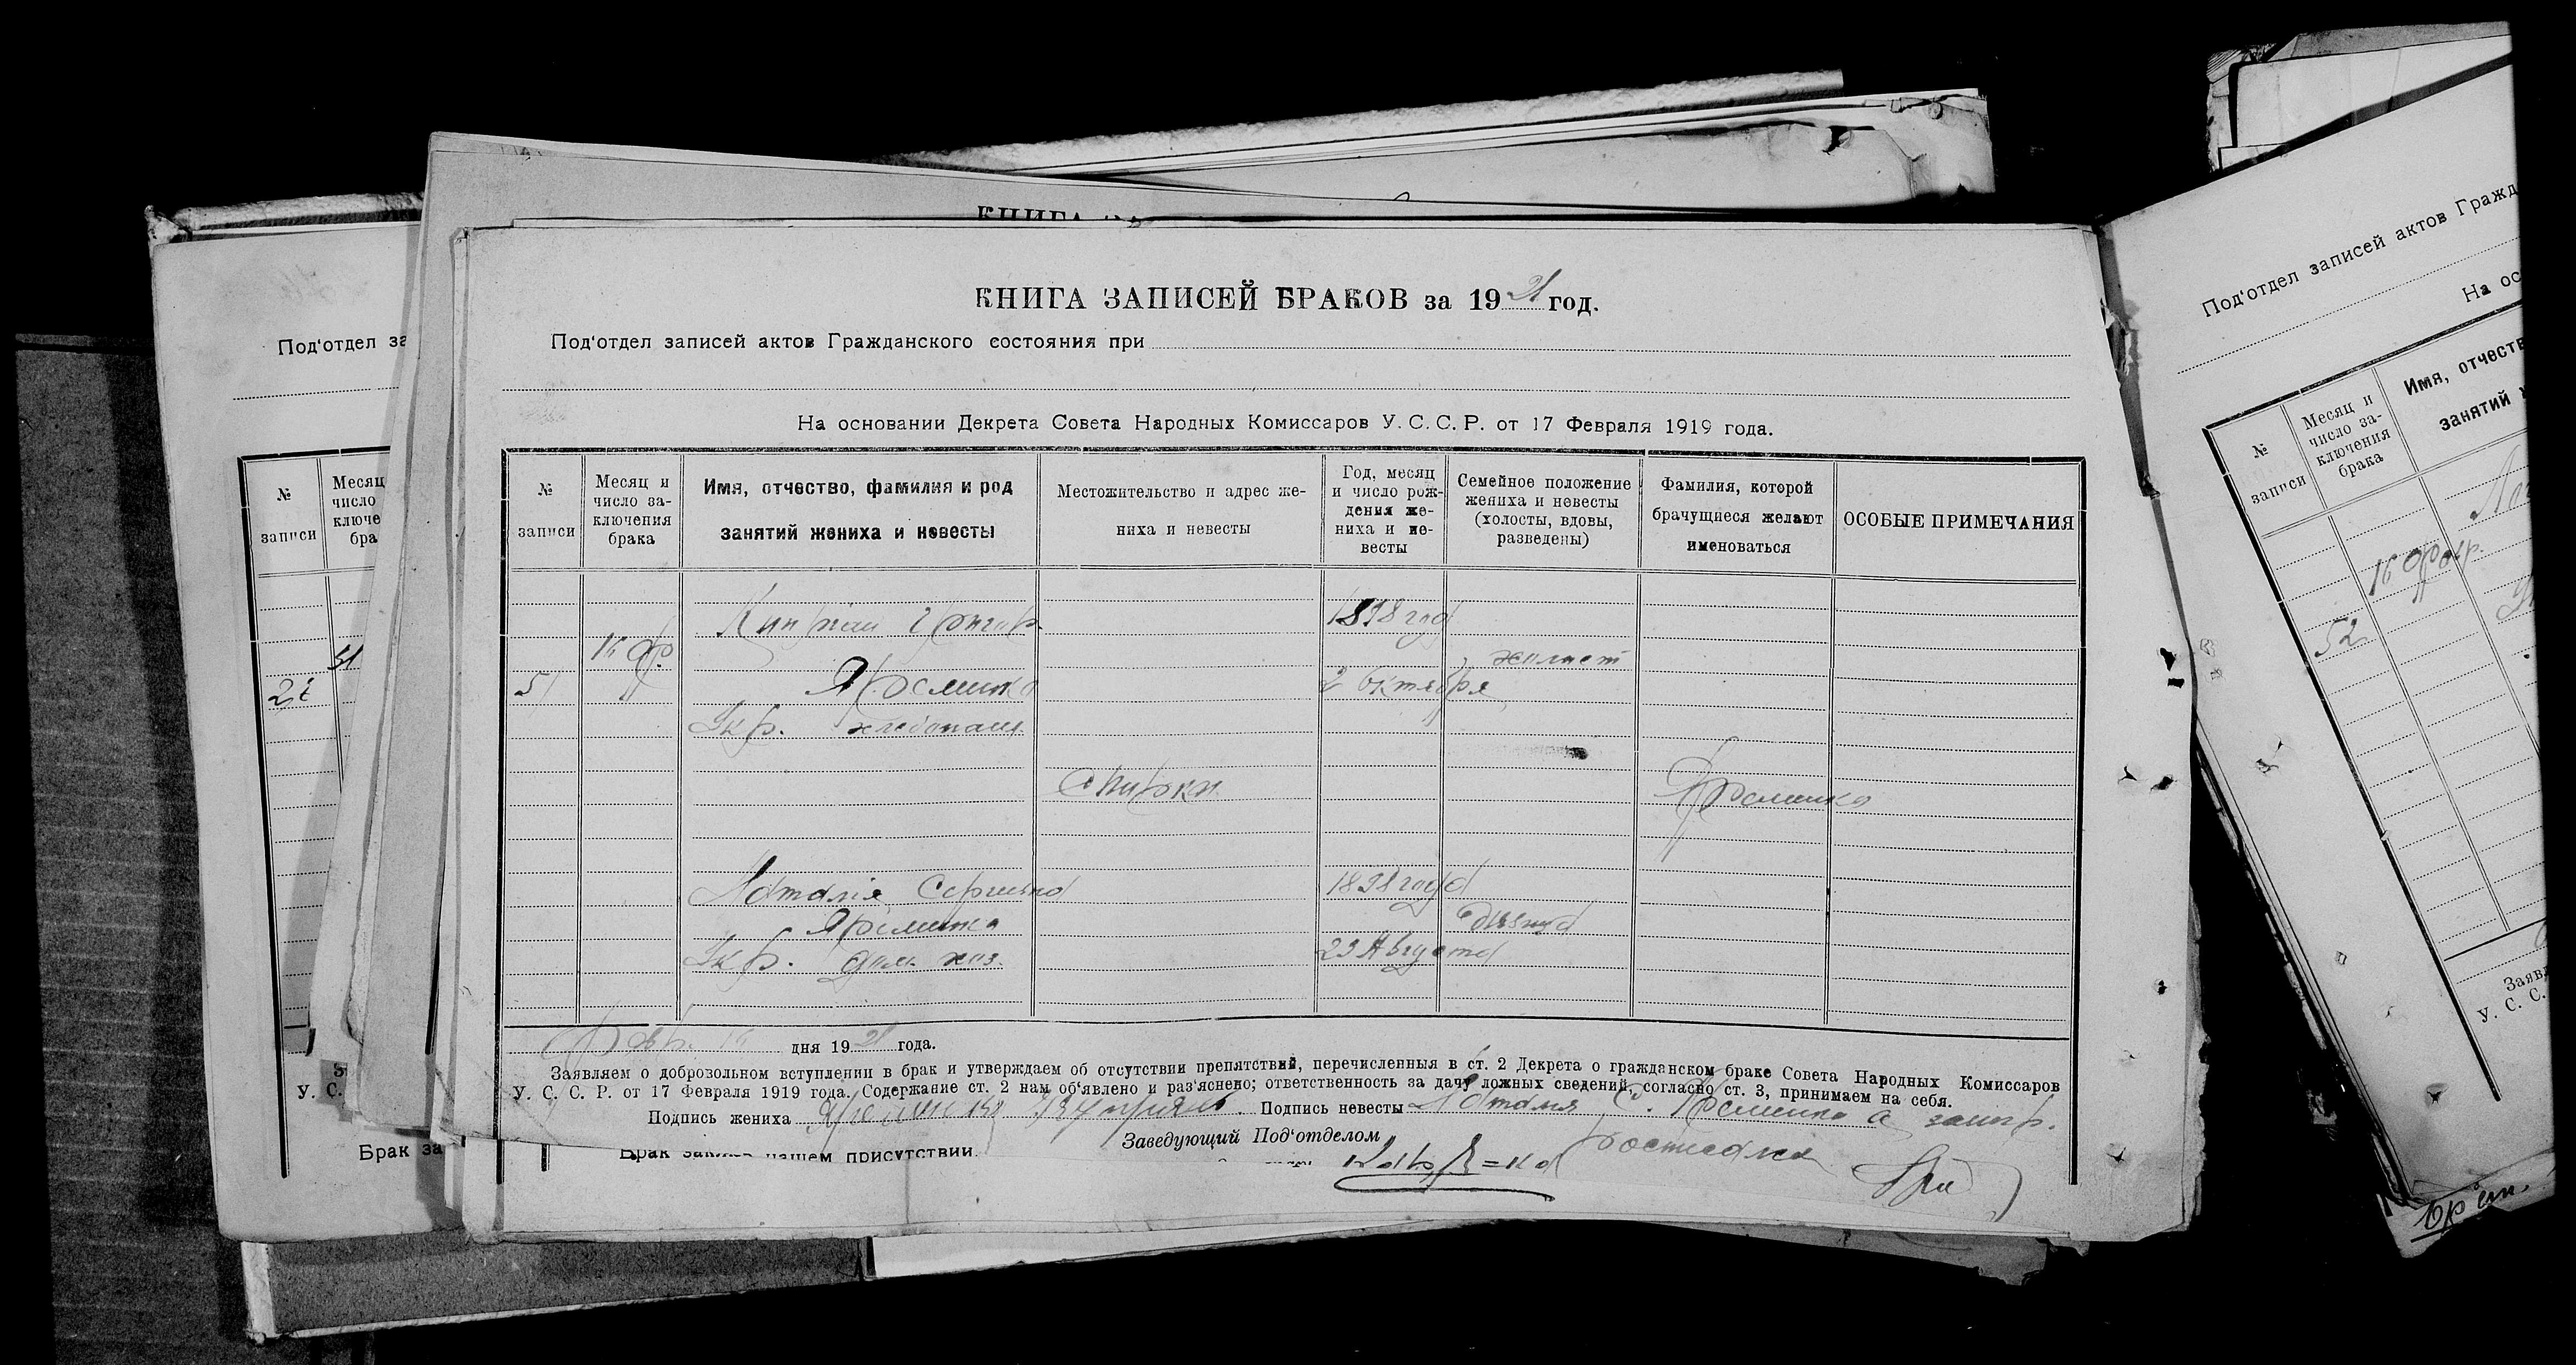 КНИГА ЗАПИСЕЙ БРАКОВ за 1921 год.
Под'отдел записей актов Гражданского состояния при
На основании Декрета Совета Народных Комиссаров У. С. С. Р. от 17 Февраля 1919 года.
№ записи
Месяц и число заключения брака
Имя, отчество, фамилия и род занятий жениха и невесты
Местожительство и адрес жениха и невесты
Год, месяц и число рождения жениха и невесты
Семейное положение жениха и невесты (холосты, вдовы, разведены)
Фамилия, которой брачущиеся желают именоваться
ОСОБЫЕ ПРИМЕЧАНИЯ
51
16 Ф.
Киприан Григор.
Яреминко
Укр. хлебопаш.
1898 год
2 Октября
холост
Опирки
Яреминко
Наталія Сергиевна
Яреминко
Укр. дом. хоз.
1898 года
23 Августа
дивица
Февр. 16 дня 1921 года.
Заявляем о добровольном вступлении в брак и утверждаем об отсутствии препятствий, перечисленныя в ст. 2 Декрета о гражданском браке Совета Народных Комиссаров
У. С. С. Р. от 17 Февраля 1919 года. Содержание ст. 2 нам об'явлено и раз'яснено; ответственность за дачу ложных сведений, согласно ст. 3, принимаем на себя.
Подпись жениха Яременко Подпись невесты Наталия С. Яременко а
Заведующий Под'отделом
нашем присутствии.
Под'отдел за
№ записи
Месяц
число
ключе
бра
У. С.
Брак за
Под'отдел записей актов Гражд
На ос
№ записи
Месяц и число заключения брака
Имя, отчеств
занятий
52
16 Февр.
Заяв
У. С. С.